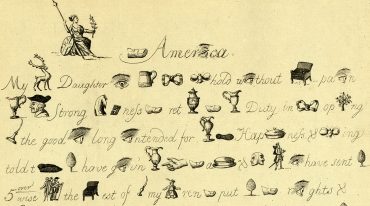 America.
My Daughter hold w thout pa n
Strong ness ret Duty in op
the good long ntended for Hap ness & ing
told t have g n a & have sent
over
5 wise the est of my ren put r ghts &